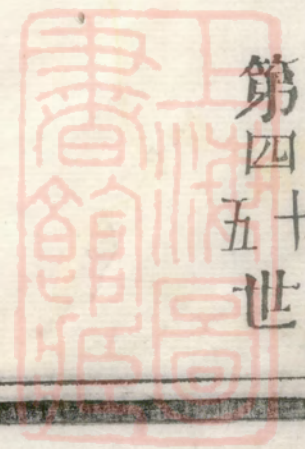 第四十五世
上海圖
書館藏